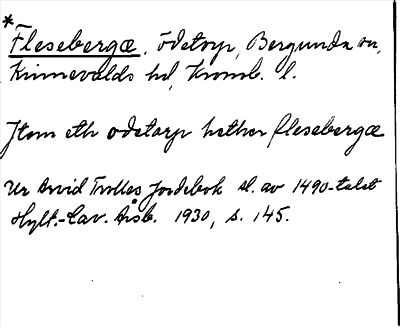 *
Flesebergæ, ödetorp, Bergunda sn,
Kinnevalds hd, Kronob. l.
Jtem eth ödetorp hether flesebergæ
Ur Arvid Trolles jordebok sl. av 1490-talet
Hylt.-Cav. Årsb. 1930, s. 145.